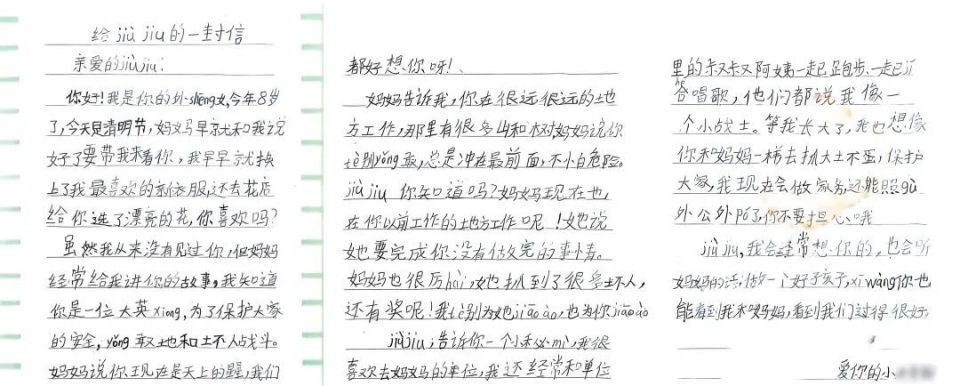 给 jiù jiu 的一封信
亲爱的 jiù jiu：
你好！我是你的外 sheng 女，今年8岁
了，今天是清明节，妈妈早就和我说
好了要带我来看你，我早早就换
上了我最喜欢的新衣服，还去花店
给你选了漂亮的花，你喜欢吗？
虽然我从来没有见过你，但妈妈
经常给我讲你的故事，我知道
你是一位大英 xiong，为了保护大家
的安全，yǒng 敢地和坏人战斗。
妈妈说你现在是天上的星，我们
都好想你呀！
妈妈告诉我，你在很远很远的地
方工作，那里有很多山和树，妈妈说你
特别 yǒng 敢，总是冲在最前面，不怕危险。
jiù jiu 你知道吗？妈妈现在也，
在你以前工作的地方工作呢！她说
她要完成你没有做完的事情。
妈妈也很厉 hài，她抓到了很多坏人，
还有奖呢！我特别为她 jiāo ào，也为你 jiāo ào
jiù jiu，告诉你一个小秘 mì，我很
喜欢去妈妈的单位，我还经常和单位
里的叔叔阿姨一起跑步、一起汇
答唱歌，他们都说我像一
个小战士。等我长大了，我也想像
你和妈妈一样去抓大坏蛋，保护
大家，我现在会做家务还能照 gù
外公外 pó 了，你不要担心哦
jiù jiu，我会经常想你的，也会听
妈妈的话，做一个好孩子，xī wàng 你也
能看到我和妈妈，看到我们过得很好。
爱你的小